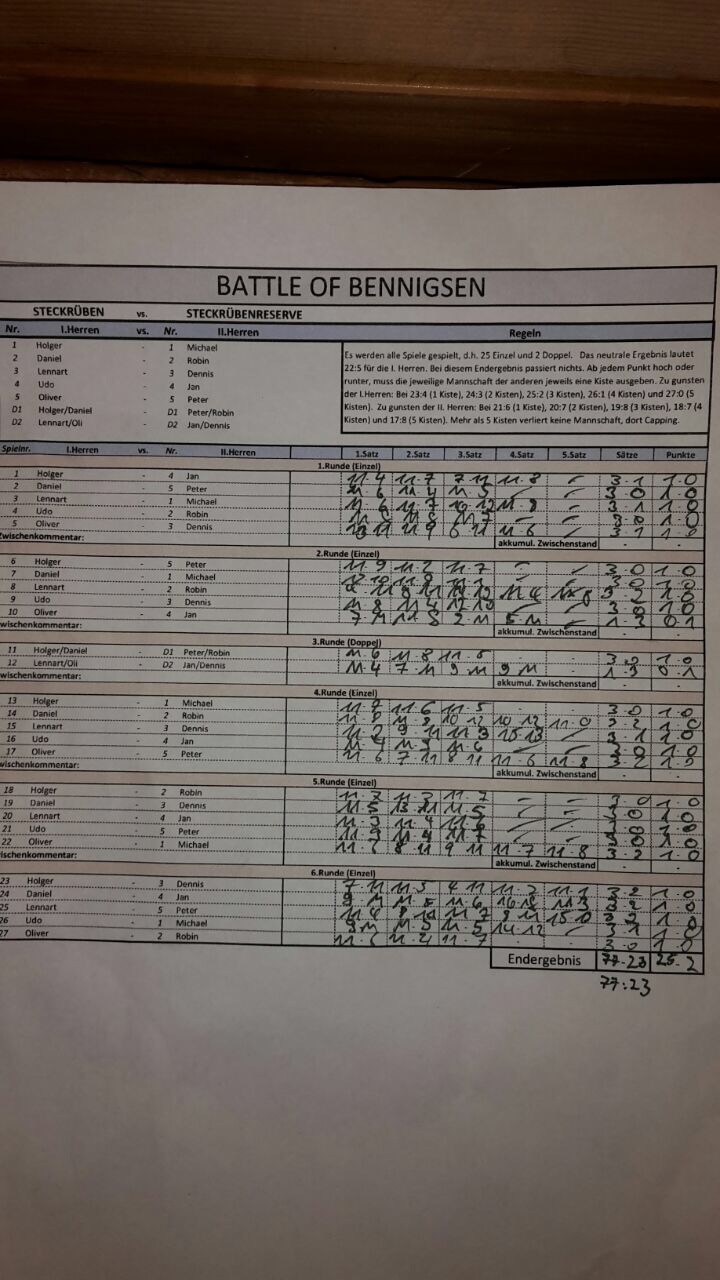 BATTLE OF BENNIGSEN
STECKRÜBEN vs. STECKRÜBENRESERVE
Nr. I.Herren vs. Nr. II.Herren Regeln
1 Holger - 1 Michael
2 Daniel - 2 Robin
3 Lennart - 3 Dennis
4 Udo - 4 Jan
5 Oliver - 5 Peter
D1 Holger/Daniel - D1 Peter/Robin
D2 Lennart/Oli - D2 Jan/Dennis
Es werden alle Spiele gespielt, d.h. 25 Einzel und 2 Doppel. Das neutrale Ergebnis lautet
22:5 für die I. Herren. Bei diesem Endergebnis passiert nichts. Ab jedem Punkt hoch oder
runter, muss die jeweilige Mannschaft der anderen jeweils eine Kiste ausgeben. Zu gunsten
der I.Herren: Bei 23:4 (1 Kiste), 24:3 (2 Kisten), 25:2 (3 Kisten), 26:1 (4 Kisten) und 27:0 (5
Kisten). Zu gunsten der II. Herren: Bei 21:6 (1 Kiste), 20:7 (2 Kisten), 19:8 (3 Kisten), 18:7 (4
Kisten) und 17:8 (5 Kisten). Mehr als 5 Kisten verliert keine Mannschaft, dort Capping.
Spielnr. I.Herren vs. Nr. II.Herren 1.Satz 2.Satz 3.Satz 4.Satz 5.Satz Sätze Punkte
1.Runde (Einzel)
1 Holger - 4 Jan 11.4 11.7 7.11 11.8 3.1 1.0
2 Daniel - 5 Peter 3.0 1.0
3 Lennart - 1 Michael 3.1 1.0
4 Udo - 2 Robin 3.0 1.0
5 Oliver - 3 Dennis 3.1 1.0
wischenkommentar: akkumul. Zwischenstand - -
2.Runde (Einzel)
6 Holger - 5 Peter 11.9 11.2 11.7 3.0 1.0
7 Daniel - 1 Michael 3.0 1.0
8 Lennart - 2 Robin 3.2 1.0
9 Udo - 3 Dennis 11.8 11.4 12.10 3.0 1.0
10 Oliver - 4 Jan 1.3 0.1
wischenkommentar: akkumul. Zwischenstand - -
3.Runde (Doppel)
11 Holger/Daniel - D1 Peter/Robin 11.6 11.8 3.0 1.0
12 Lennart/Oli - D2 Jan/Dennis 11.4 7.11 9.11 9.11 1.3 0.1
wischenkommentar: akkumul. Zwischenstand - -
4.Runde (Einzel)
13 Holger - 1 Michael 11.7 11.6 11.5 3.0 1.0
14 Daniel - 2 Robin 11.8 11.8 10.12 10.12 11.0 3.2 1.0
15 Lennart - 3 Dennis 11.2 9.11 11.3 15.13 3.1 1.0
16 Udo - 4 Jan 3.0 1.0
17 Oliver - 5 Peter 11.6 7.11 8.11 11.6 11.8 3.2 1.0
wischenkommentar: akkumul. Zwischenstand - -
5.Runde (Einzel)
18 Holger - 2 Robin 3.0 1.0
19 Daniel - 3 Dennis 11.5 13.11 11.5 3.0 1.0
20 Lennart - 4 Jan 11.3 11.4 11.6 3.0 1.0
21 Udo - 5 Peter 3.0 1.0
22 Oliver - 1 Michael 8.11 9.11 11.7 11.8 3.2 1.0
ischenkommentar: akkumul. Zwischenstand - -
6.Runde (Einzel)
23 Holger - 3 Dennis 7.11 11.5 4.11 3.2 1.0
24 Daniel - 4 Jan 3.2 1.0
25 Lennart - 5 Peter 15.10 3.2 1.0
26 Udo - 1 Michael 9.11 11.5 11.5 14.12 3.1 1.0
27 Oliver - 2 Robin 11.7 3.0 1.0
Endergebnis 77.23 25.2
77:23